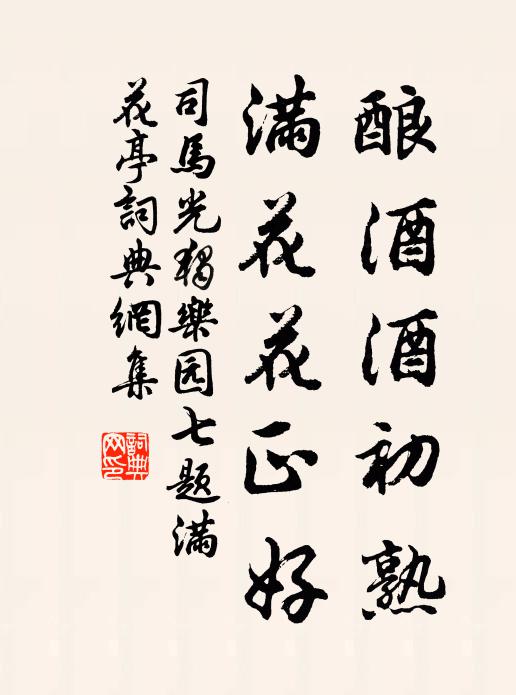 酿酒酒初熟
满花花正好
司馬光獨樂园七题满
花亭詞典網集
詞典网印